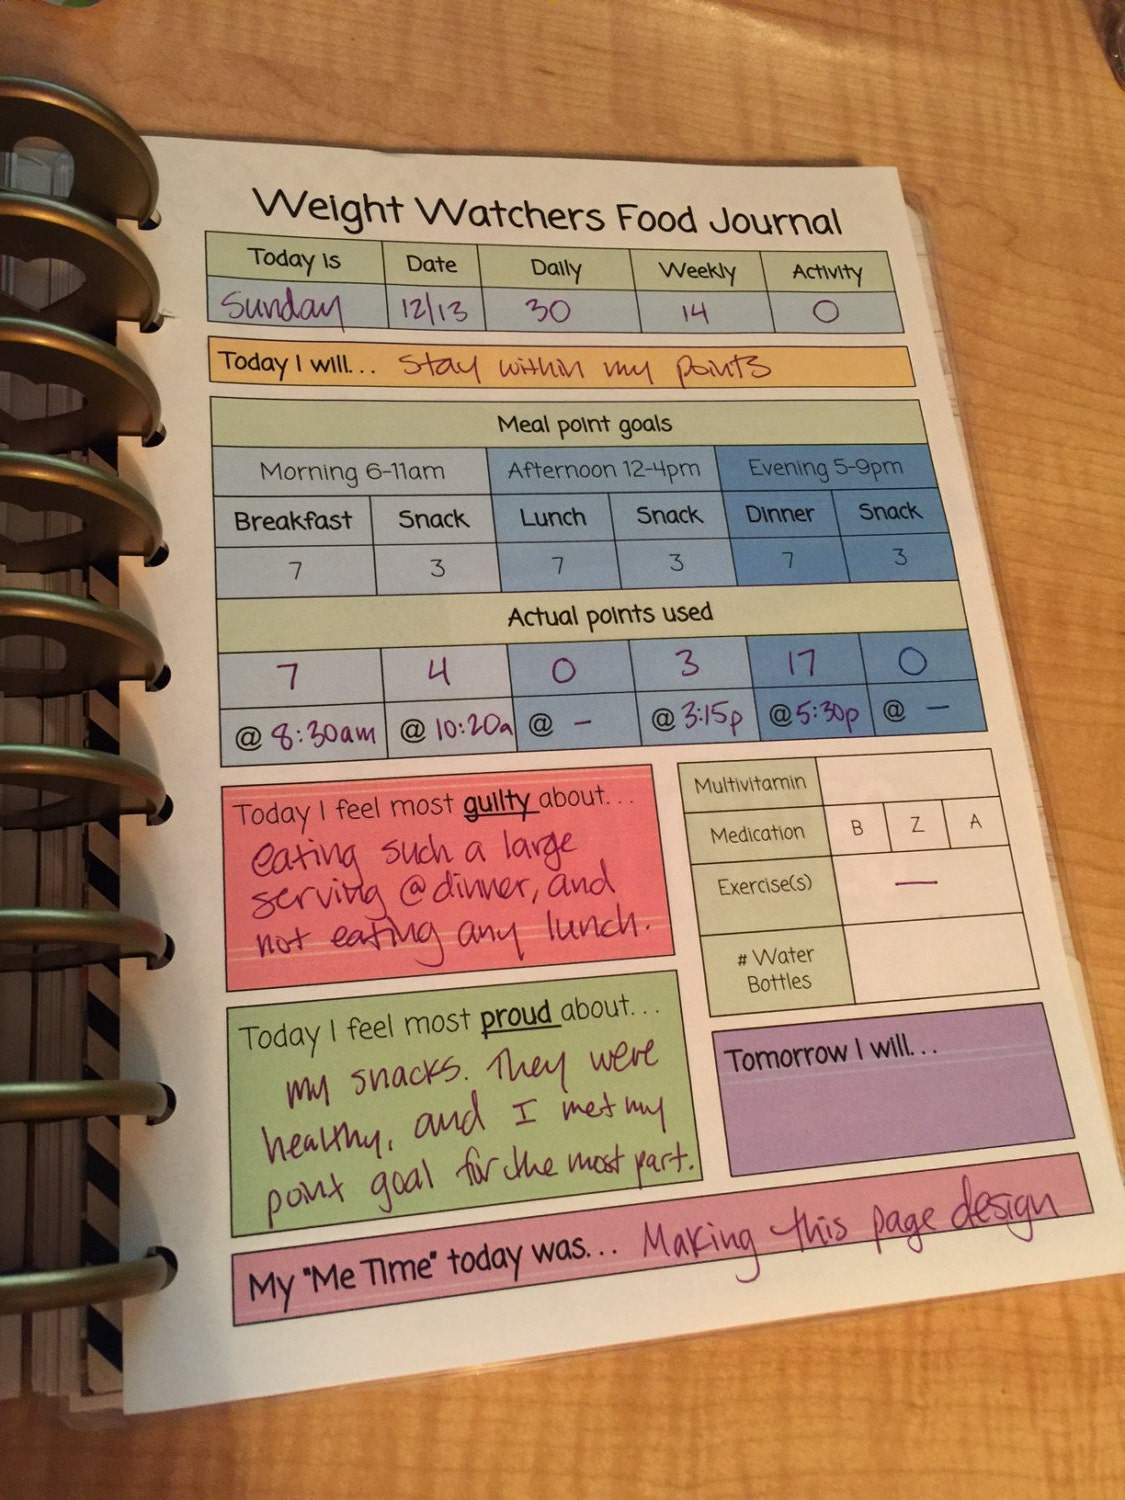 Weight Watchers Food Journal
Today is Date Daily Weekly Activity
Sunday 12/13 30 14 0
Today I will... Stay within my points
Meal point goals
Morning 6-11am Afternoon 12-4pm Evening 5-9pm
Breakfast Snack Lunch Snack Dinner Snack
7 3 7 3 7 3
Actual points used
7 4 0 3 17 0
@ 8:30am @ 10:20a @ – @ 3:15p @ 5:30p @ –
Today I feel most guilty about...
eating such a large
serving @ dinner, and
not eating any lunch.
Multivitamin
Medication B Z A
Exercise(s) —
# Water
Bottles
Today I feel most proud about...
my snacks. They were
healthy, and I met my
point goal for the most part.
Tomorrow I will...
My "Me Time" today was... Making this page design